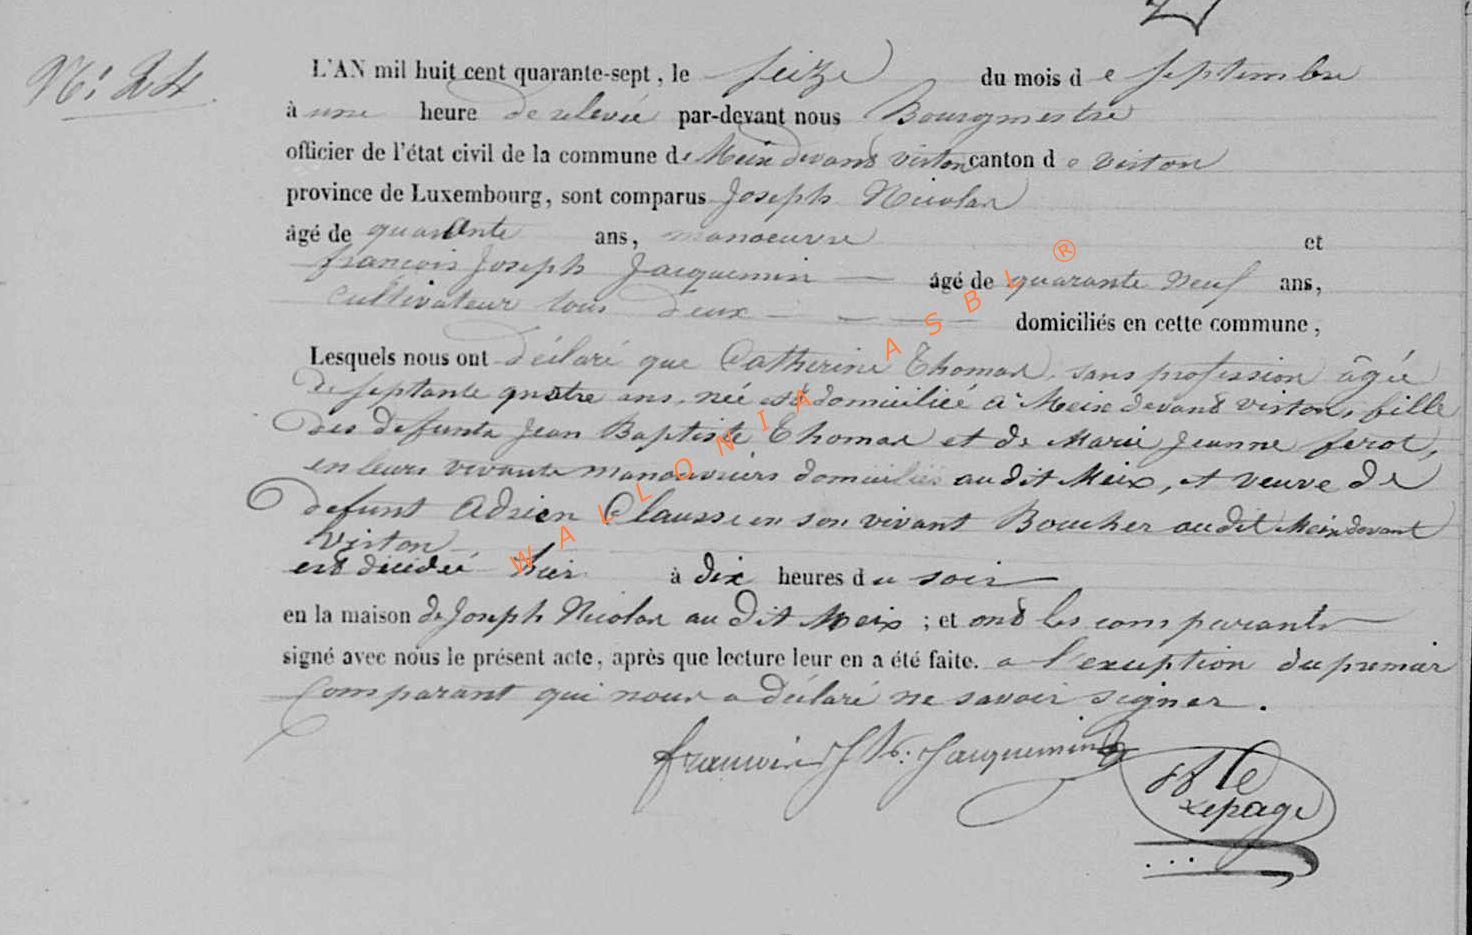 N° 24
L'AN mil huit cent quarante-sept, le seize du mois de Septembre
à une heure de relevée par-devant nous Bourgmestre
officier de l'état civil de la commune de Meix devant virton canton de virton
province de Luxembourg, sont comparus Joseph Nicolas
âgé de quarante ans, manoeuvre et
francois Joseph Jacquemin âgé de quarante neuf ans,
cultivateur tous deux domiciliés en cette commune,
Lesquels nous ont déclaré que Catherine Thomas, sans profession âgée
de septante quatre ans, née et domiciliée à Meix devant virton, fille
des defunts Jean Baptiste Thomas et de Marie Jeanne ferot,
en leurs vivants manouvriers domiciliés au dit Meix, et veuve de
defunt Adrien Clausse en son vivant Boucher au dit Meix devant
Virton
est décédée hier à dix heures du soir
en la maison de Joseph Nicolas au dit Meix ; et ont les comparants
signé avec nous le présent acte, après que lecture leur en a été faite. a l'exception du premier
Comparant qui nous a déclaré ne savoir signer.
francois Jh. Jacquemin
Lepage
WALLONIA ASBL ®